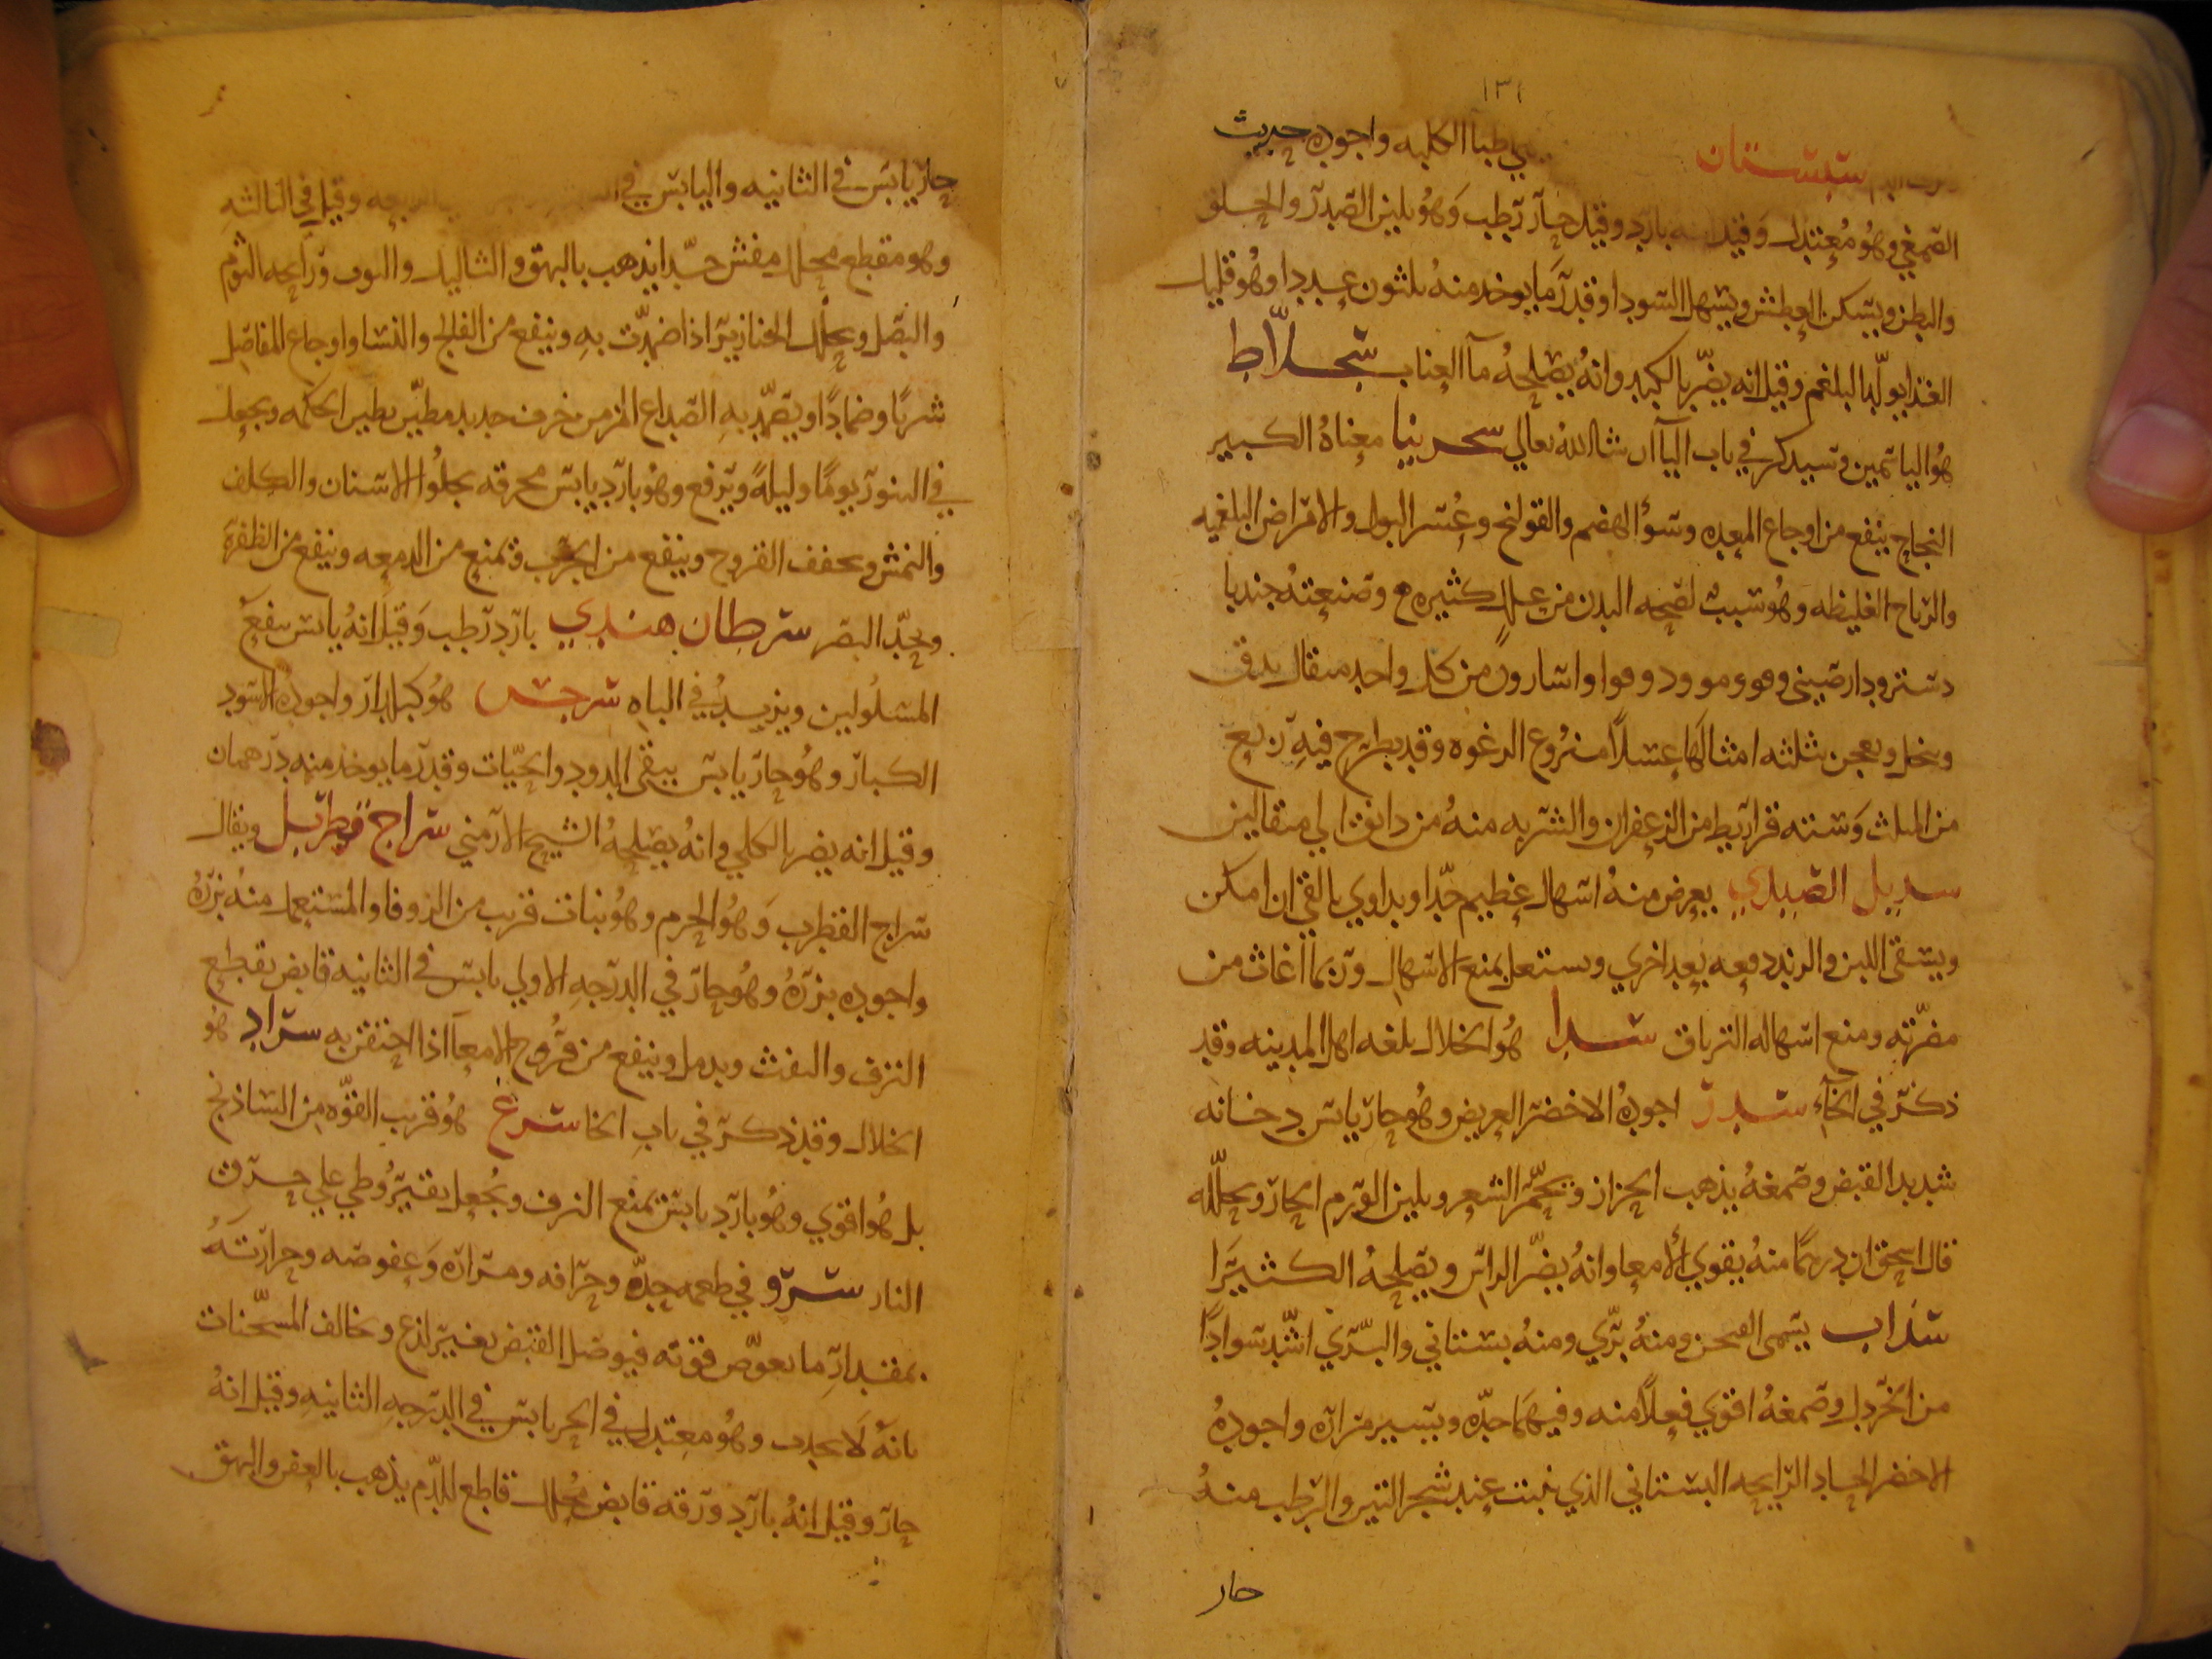 ١٣١
سبستان اطبا الكلبه واجوده حديث
الصمغي وهو معتدل وقيل انه بارد وقيل حار رطب وهو يلين الصدر والحلق
والبطن ويسكن العطش ويسهل السودا وقدر ما يوخذ منه ثلثون عددا وهو قليل
الغذا يولد البلغم وقيل انه يضر بالكبد وانه يصلحه مآ العناب سجلاط
هو الياسمين وسيذكر في باب اليآ ان شا الله تعالي سجرنيا معناه الكبير
النجاح ينفع من اوجاع المعده وسؤ الهضم والقولنج وعسر البول والامراض البلغميه
والرياح الغليظه وهو سبب لصحه البدن من علل كثيره وصنعته جندبا
دستر ودارصيني وفوه ومو ودوقوا واسارون من كل واحد مثقال يدق
وينخل ويعجن بثلثه امثالها عسلا منزوع الرغوه وقد يطرح فيه ربع
من المثلث وسته قراريط من الزعفران والشربه منه من دانق الي مثقالين
سديل الصيدلي يعرض منه اسهال عظيم جدا ويداوي بالقي ان امكن
ويسقي اللبن والزبد دفعه بعد اخري ويستعمل بمنع الاسهال وربما اغاث من
مضرته ومنع اسهاله الترياق سدا هو الخلال بلغه اهل المدينه وقد
ذكر في الخآء سدر اجوده الاخضر العريض وهو حار يابس دخانه
شديد القبض وصمغه يذهب الحزاز ويحمر الشعر ويلين الورم الحار ويحلله
قال اسحق ان درهما منه يقوي الأمعا وانه يضر الراس ويصلحه الكثيرا
سذاب يسمي الفيجن ومنه بري ومنه بستاني والبري اشد سوادا
من الخردل وصمغه اقوي فعلا منه وفيهما حده ويسير مراره واجوده
الاخضر الحاد الرايحه البستاني الذي نبت عند شجر التين والرطب منه
حار
حار يابس في الثانيه واليابس في وقيل في الثالثه
وهو مقطع محلل مفش جدا يذهب بالبهق والثاليل ورايحه الثوم
والبصل ويحلل الخنازير اذا ضمدت به وينفع من الفالج والنسا واوجاع المفاصل
شربا وضمادا ويضمد به الصداع المزمن خرف جديد مطين بطين الحكمه ويجعل
في التنور يوما وليله ويرفع وهو بارد يابس محرقه يجلو الاسنان والكلف
والنمش ويجفف القروح وينفع من الجرب ويمنع من الدمعه وينفع من الظفره
ويحد البصر سرطان هندي بارد رطب وقيل انه يابس ينفع
المسلولين ويزيد في الباه سرخس هو كيلدار واجوده الاسود
الكبار وهو حار يابس يبقي الدود والحيات وقدر ما يوخذ منه درهمان
وقيل انه يضر بالكلي وانه يصلحه الشيح الارمني سراج قطربل ويقال
سراج القطرب وهو الخرم وهو نبات قريب من الزوفا والمستعمل منه بزره
واجوده بزره وهو حار في الدرجه الاولي يابس في الثانيه قابض يقطع
النزف والنفث ويدمل وينفع من قروح الامعآ اذا احتقن به سراد هو
الخلال وقد ذكر في باب الخا سرغ هو قريب القوه من الشاذنج
بل هو اقوي وهو بارد يابس يمنع النزف ويجعل بقيروطي علي حرق
النار سرو في طعمه حده وحرافه ومراره وعفوصه وحرارته
بمقدار ما يغوص قوته فيوصل القبض بغير لذع ويخالف المسخنات
بانه لا يجذب وهو معتدل في الحر يابس في الدرجه الثانيه وقيل انه
حار وقيل انه بارد ورقه قابض محلل قاطع للدم يذهب بالعفن والبهق